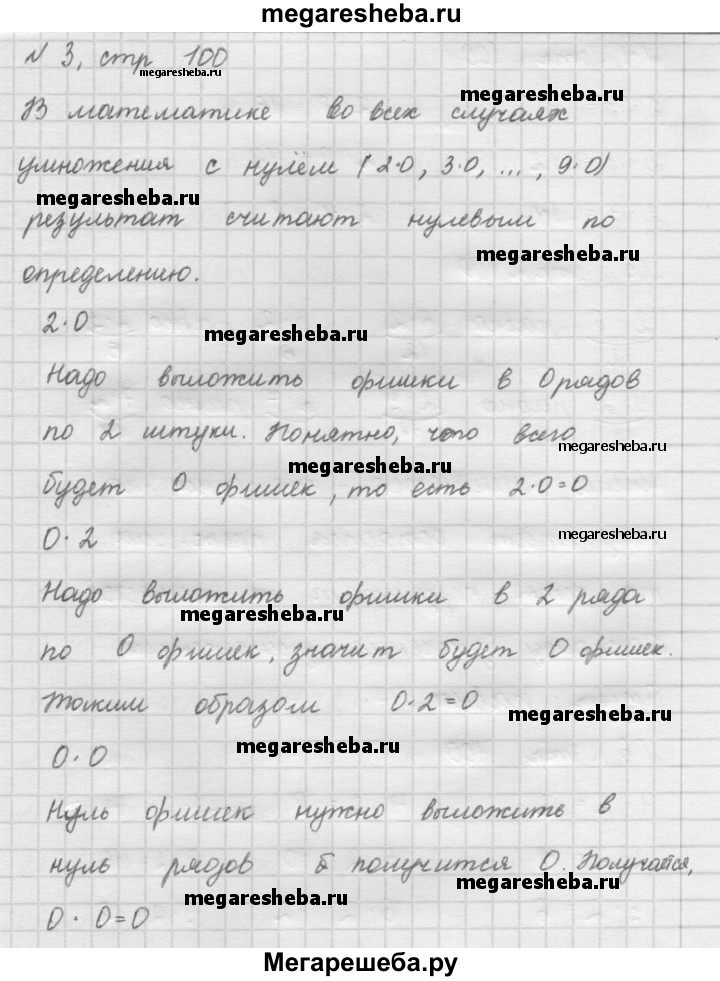 megaresheba.ru
N 3, стр 100
megaresheba.ru
megaresheba.ru
В математике во всех случаях
умножения с нулём (2·0, 3·0, ..., 9·0)
megaresheba.ru
результат считают нулевым по
megaresheba.ru
определению.
2·0
megaresheba.ru
Надо выложить фишки в 0 рядов
по 2 штуки. Понятно, что всего
megaresheba.ru
megaresheba.ru
будет 0 фишек, то есть 2·0=0
0·2
megaresheba.ru
Надо выложить фишки в 2 ряда
megaresheba.ru
по 0 фишек, значит будет 0 фишек.
Таким образом 0·2=0
megaresheba.ru
megaresheba.ru
0·0
Нуль фишек нужно выложить в
нуль рядов получится 0. Получается,
megaresheba.ru
megaresheba.ru
0·0=0
Мегарешеба.ру